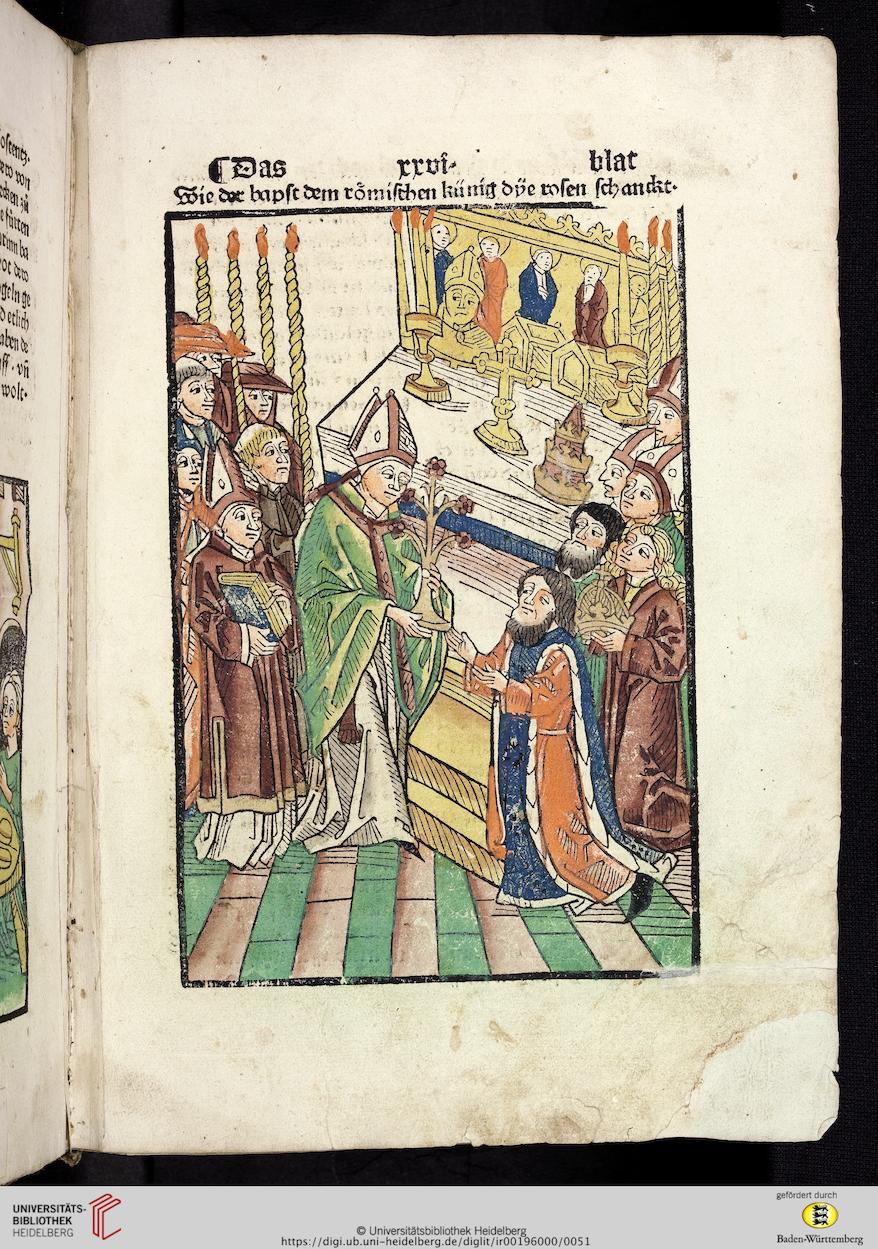 ¶Das xxvi· blat
Wie der bapst dem römischen künig dÿe rosen schanckt·
wolt·
UNIVERSITÄTS-
BIBLIOTHEK
HEIDELBERG
© Universitätsbibliothek Heidelberg
https://digi.ub.uni-heidelberg.de/diglit/ir00196000/0051
gefördert durch
Baden-Württemberg